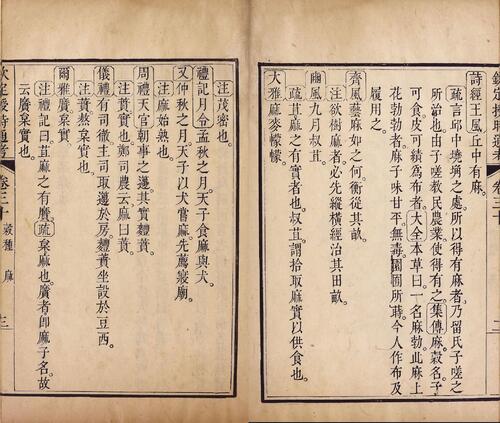 欽定授時通考 卷三十 二
詩經王風丘中有麻。
疏言邱中墝埆之處。所以得有麻者。乃留氏子嗟之
所治也。由子嗟教民農業。使得有之。集傳麻。穀名。子
可食。皮可績為布者。大全本草曰。一名麻勃。此麻上
花勃勃者。麻子味甘平。無毒。園圃所蒔。今人作布及
履用之。
齊風蓺麻如之何。衡從其畝。
注欲樹麻者。必先縱橫經治其田畝。
豳風九月叔苴。
疏苴。麻之有實者也。叔苴。謂拾取麻實以供食也。
大雅麻麥幪幪。
注茂密也。
禮記月令孟秋之月。天子食麻與犬。
又仲秋之月。天子以犬嘗麻。先薦寢廟。
注麻始熟也。
周禮天官朝事之籩。其實麷蕡。
注蕡。枲實也。鄭司農云。麻曰蕡。
儀禮有司徹主司取籩於房。麷蕡坐設於豆西。
注蕡。熬枲實也。
爾雅黂枲實。
注禮記曰。苴麻之有黂。疏枲。麻也。黂者。即麻子名。故
云黂枲實也。
欽定授時通考 卷三十 穀種 麻 三